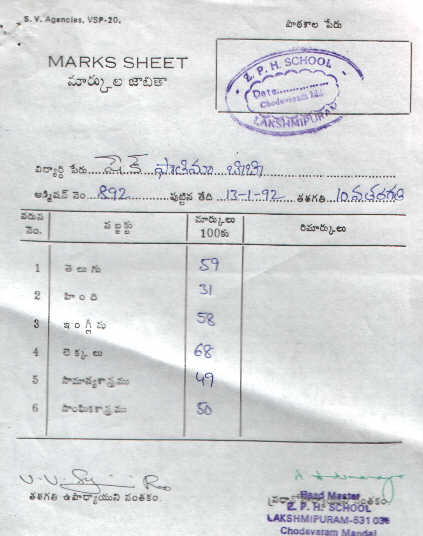 S. V. Agencies, VSP-20.
పాఠశాల పేరు
MARKS SHEET
మార్కుల జాబితా
Z. P. H. SCHOOL
Date
Chodavaram Mdl
LAKSHMIPURAM
విద్యార్థి పేరు షేక్ ఫాతిమా బీబీ
అడ్మిషన్ నెం 892 పుట్టిన తేది 13-1-92 తరగతి 10వతరగతి
వరుస నెం. సబ్జక్టు మార్కులు 100కు రిమార్కులు
1 తెలుగు 59
2 హింది 31
3 ఇంగ్లీషు 58
4 లెక్కలు 68
5 సామాన్యశాస్త్రము 49
6 సాంఘికశాస్త్రము 50
తరగతి ఉపాధ్యాయుని సంతకం. సంతకం
Head Master
Z. P. H. SCHOOL
LAKSHMIPURAM-531 036
Chodavaram Mandal